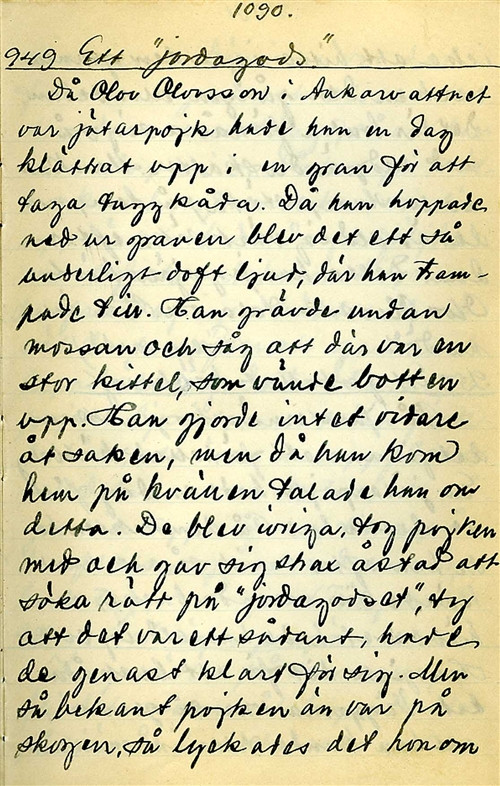 1090.
949 Ett "jordagods"
Då Olov Olovsson i Ankarvattnet
var jätarpojk hade han en dag
klättrat upp i en gran för att
taga tuggkåda. Då han hoppade
ned ur granen blev det ett så
underligt doft ljud, där han tram-
pade till. Han grävde undan
mossan och såg att där var en
stor kittel, som vände botten
upp. Han gjorde intet vidare
åt saken, men då han kom
hem på kvällen talade han om
detta. De blev ivriga, tog pojken
med och gav sig strax åstad att
söka rätt på "jordagodset", ty
att det var ett sådant, hade
de genast klart för sig. Men
så bekant pojken än var på
skogen, så lyckades det honom